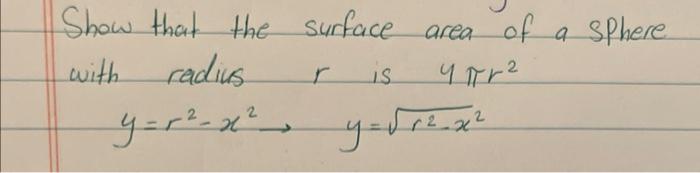 Show that the surface area of a sphere
with radius r is 4πr²
y=r²-x² → y=√r²-x²